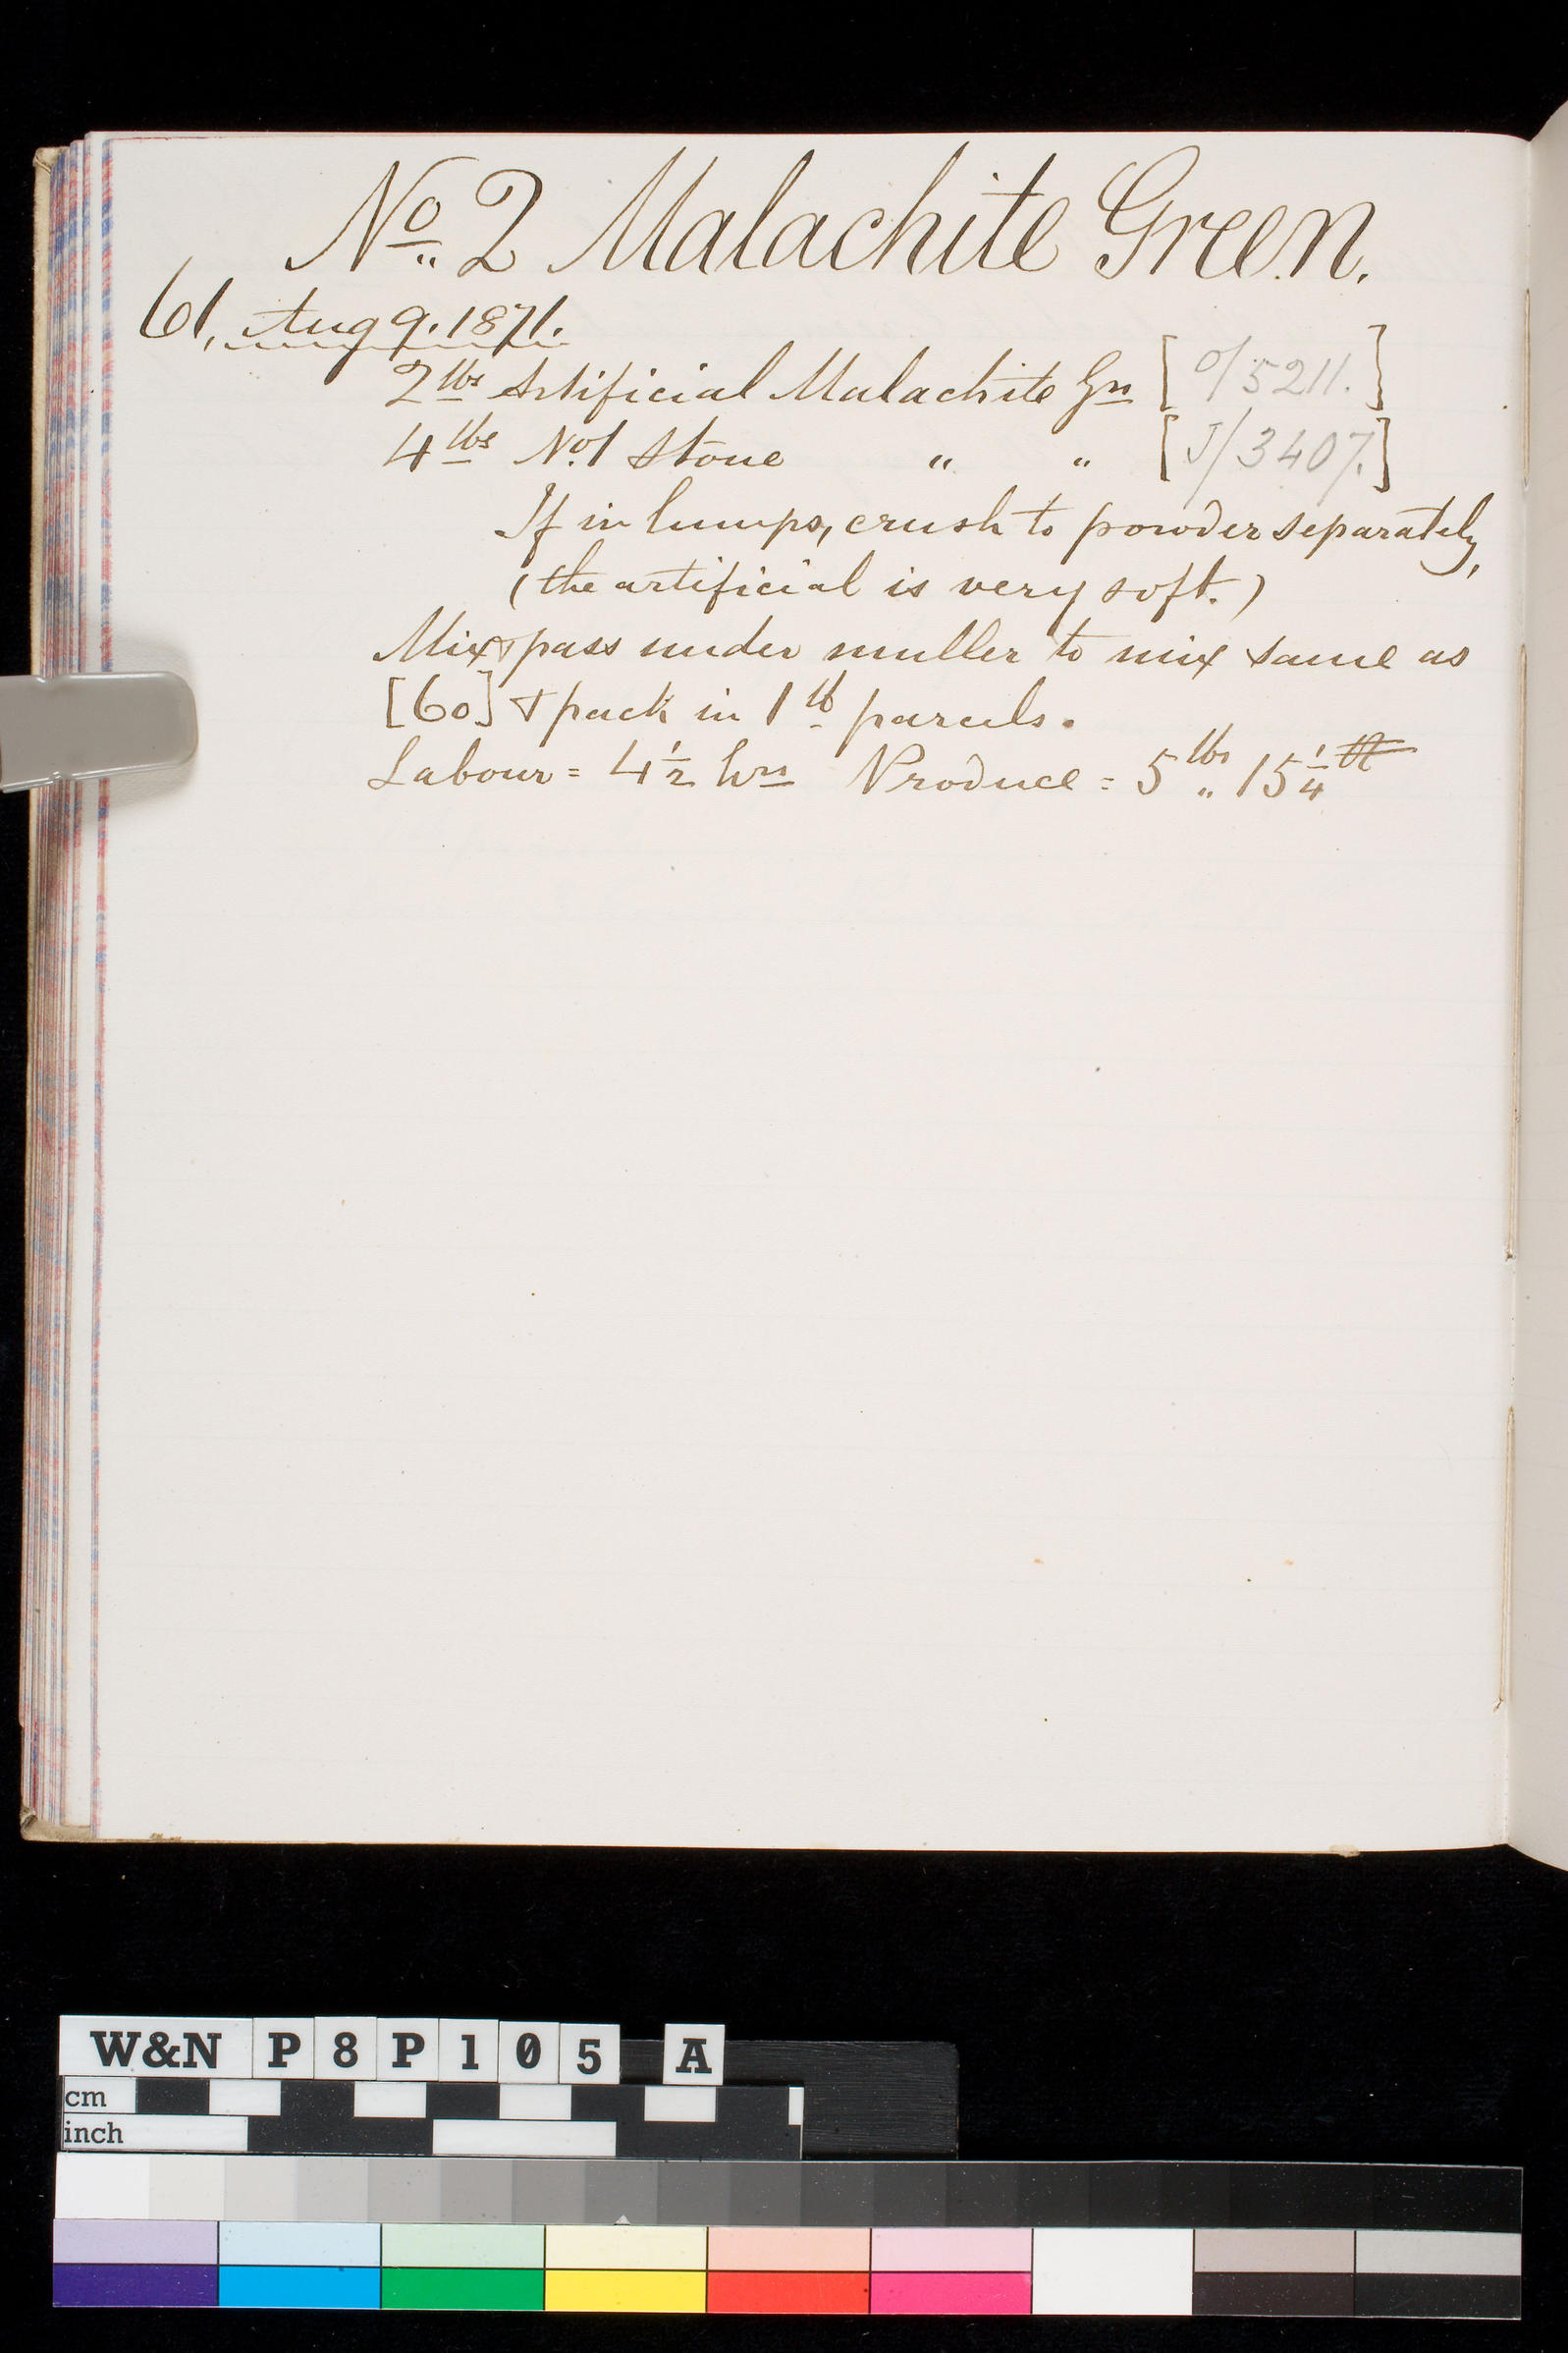 No. 2 Malachite Green.
61, Aug 9. 1871.
2 lbs Artificial Malachite Gn [O/5211.]
4 lbs No. 1 Stone " " [J/3407.]
If in lumps, crush to powder separately,
(the artificial is very soft.)
Mix & pass under muller to mix same as
[60] & pack in 1 lb parcels.
Labour = 4 1/2 hrs Produce = 5 lbs " 15 1/4
W&N P8P105 A
cm
inch